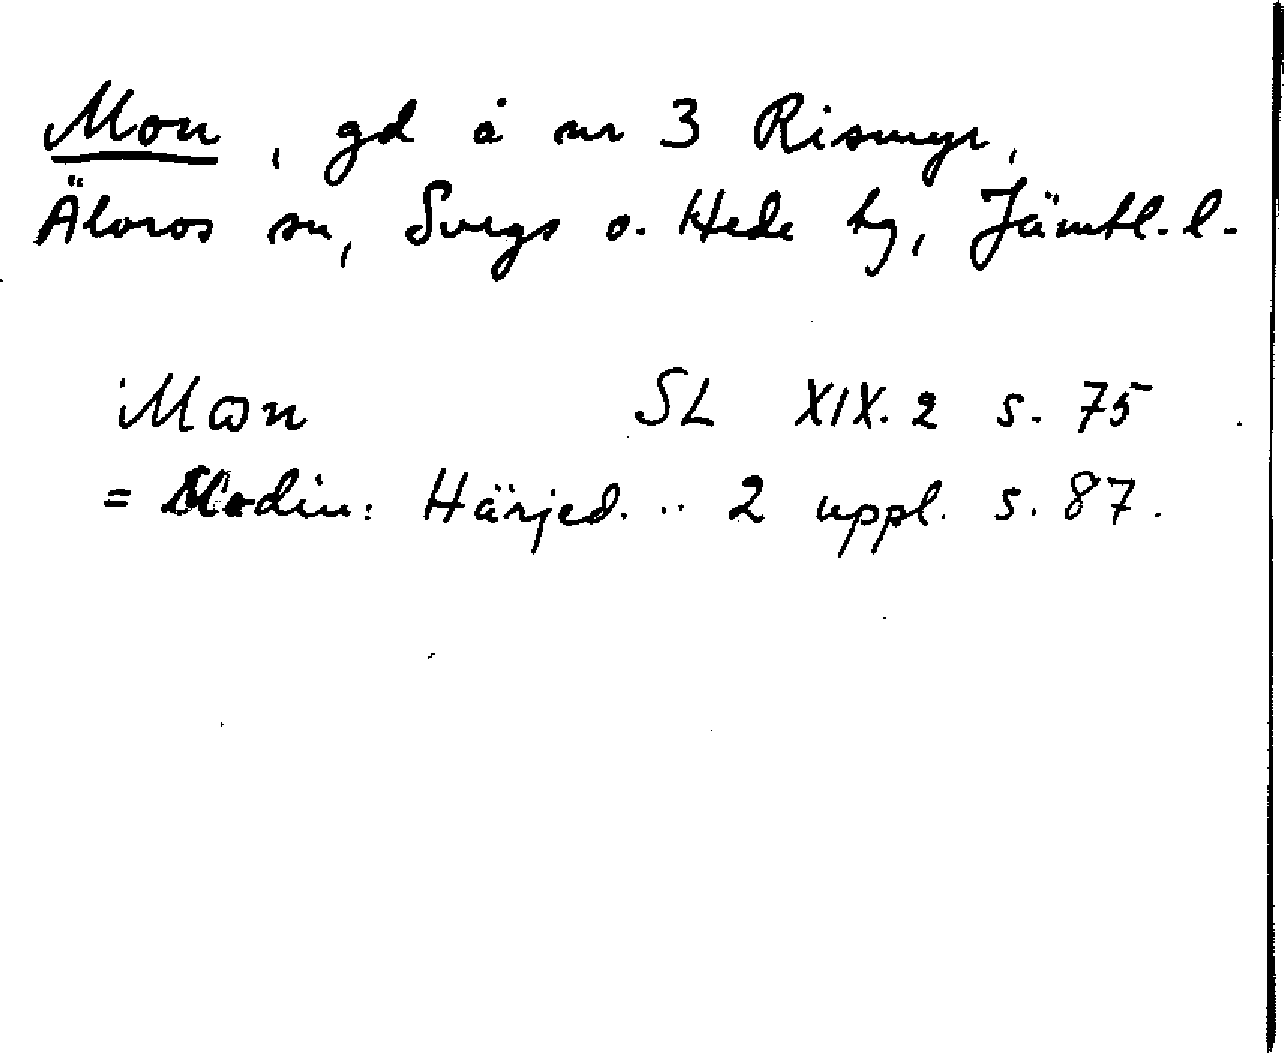 Mon, gd å nr 3 Rismyr,
Älvros sn, Svegs o. Hede tg, Jämtl. l.
Mon SL XIX. 2 s. 75
= Modin: Härjed. .. 2 uppl. s. 87.